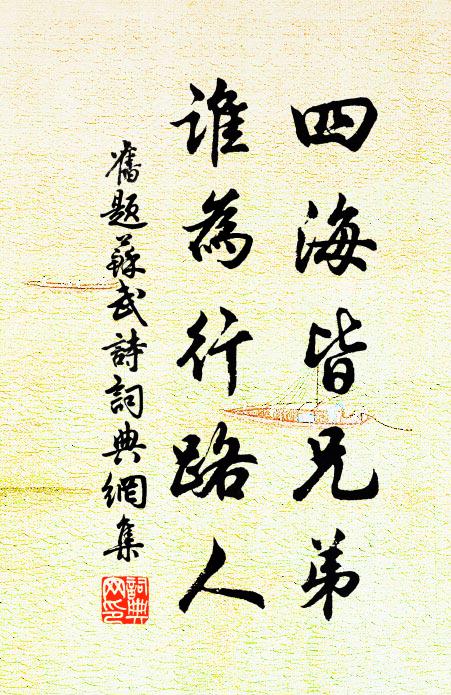 四海皆兄弟
誰為行路人
舊題蘇武詩詞典網集
詞典網印